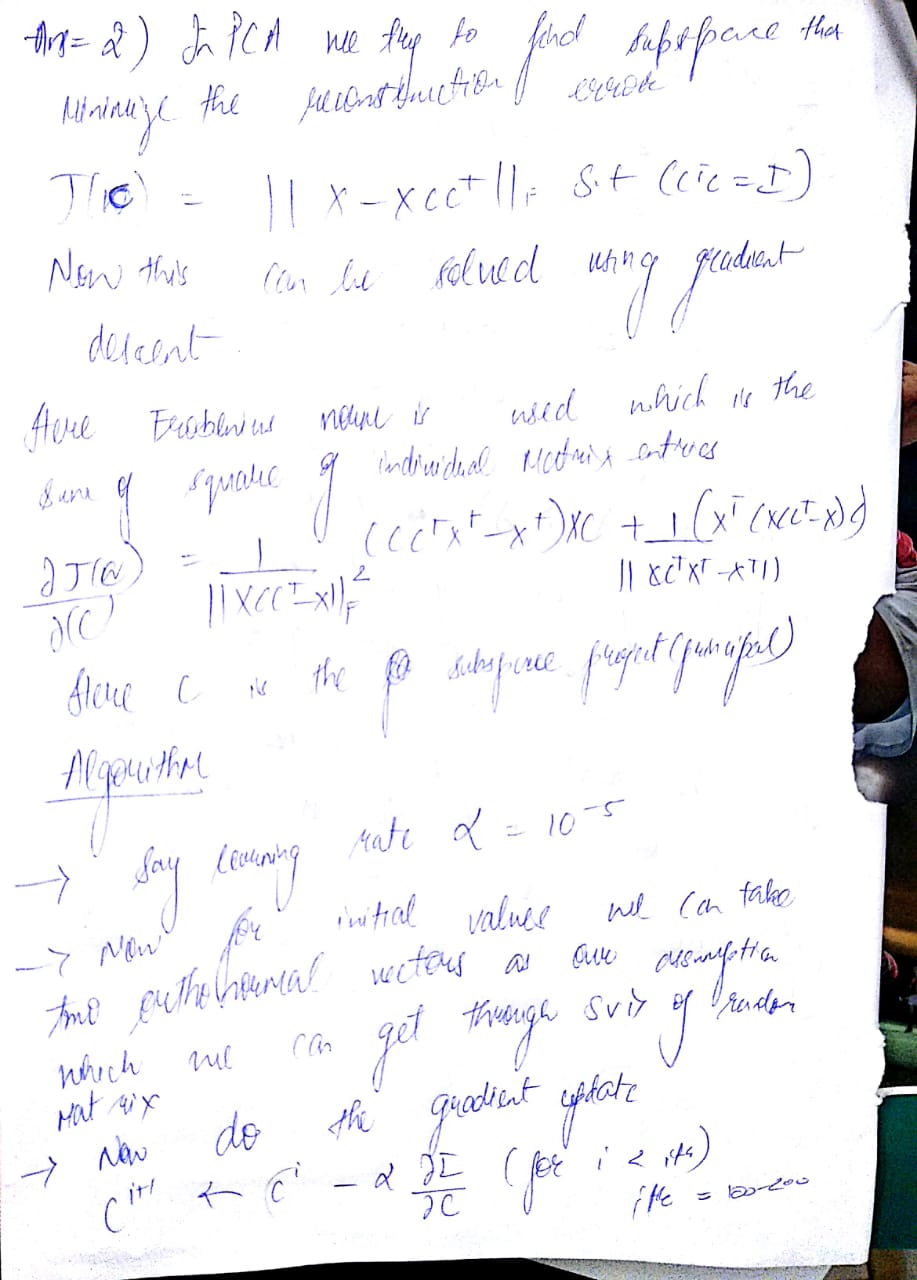 Ans= 2) In PCA we try to find subspace that
Minimize the reconstruction error
J(C) = || X - XCC^T ||_F S.t (C^TC = I)
Now this can be solved using gradient
descent.
Here Frobenius norm is used which is the
sum of square of individual Matrix entries
∂J(C)/∂(C) = 1/||XCC^T-X||_F^2 (CC^TX^T - X^T)XC + 1/||XC^TX^T-X^T|| (X^T(XCC^T-X)C)
Here C is the subspace project (principal)
Algorithm
→ Say learning rate α = 10^-5
→ Now for initial values we can take
two orthonormal vectors as our assumption
which we can get through SVD of random
Matrix
→ Now do the gradient update
C^{i+1} ← C^i - α ∂J/∂C (for i < itr)
itr = 100-200